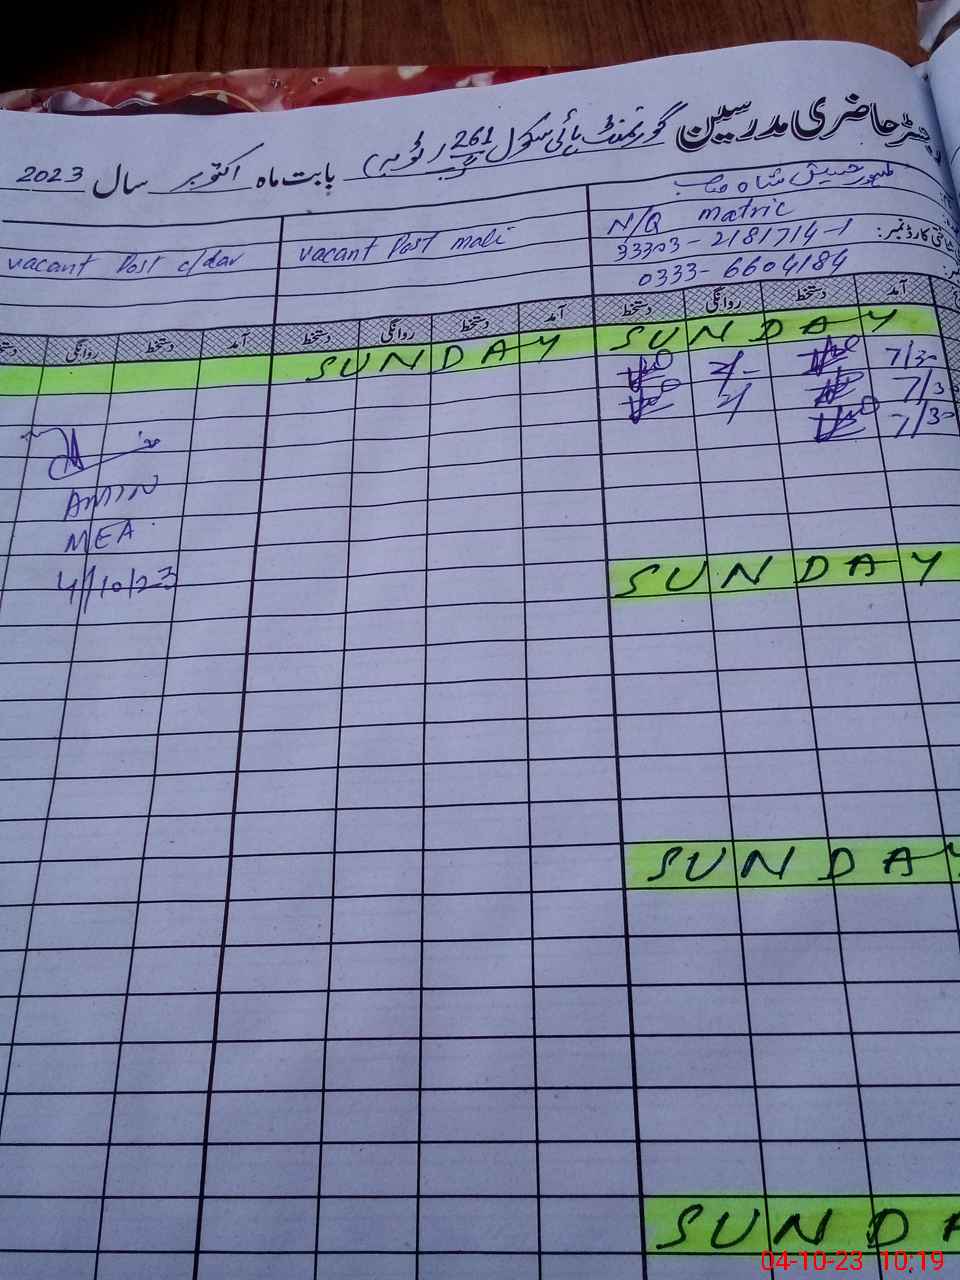 رجسٹر حاضری مدرسین گورنمنٹ ہائی سکول 261 بابت ماہ اکتوبر سال 2023
شاہ صاحب
N/Q matric
شناختی کارڈ نمبر: 33303-2181714-1
0333-6604184
vacant Post mali
vacant Post c/dar
آمد دستخط روانگی دستخط آمد دستخط روانگی دستخط آمد دستخط روانگی
SUNDAY SUNDAY
7/30 2/-
7/30 2/
7/30
AMIN
MEA
4/10/23
SUNDAY
SUNDAY
SUNDA
04-10-23 10:19